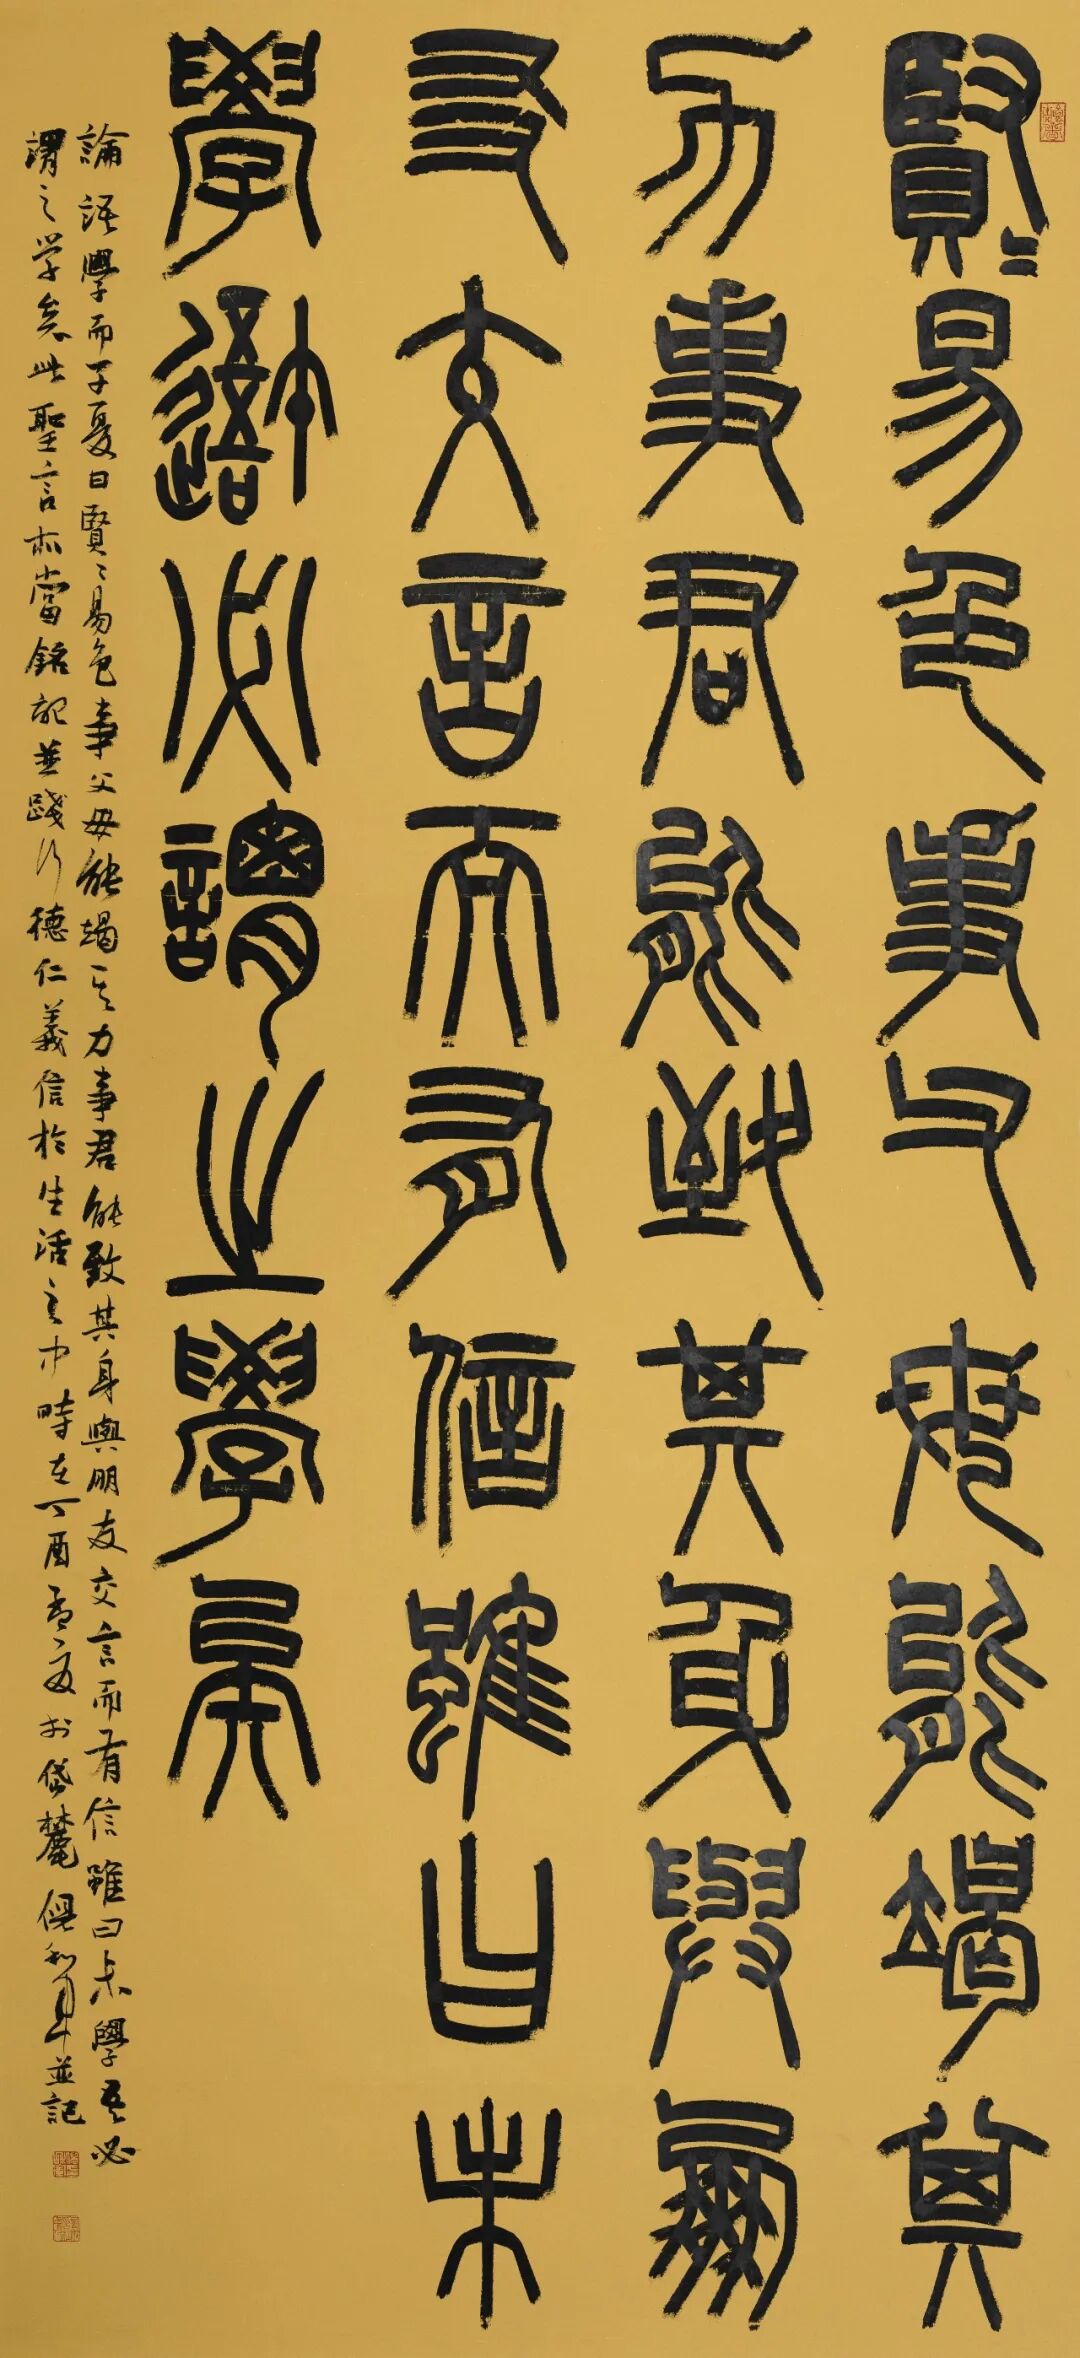 賢〻易色事父母能竭其
力事君能致其身與朋
友交言而有信雖曰未
學吾必謂之學矣
論語學而子夏曰賢〻易色事父母能竭其力事君能致其身與朋友交言而有信雖曰未學吾必
謂之学矣此聖言亦當銘記並踐行德仁義信於生活之中時在丁酉孟夏於岱麓倪和军並記